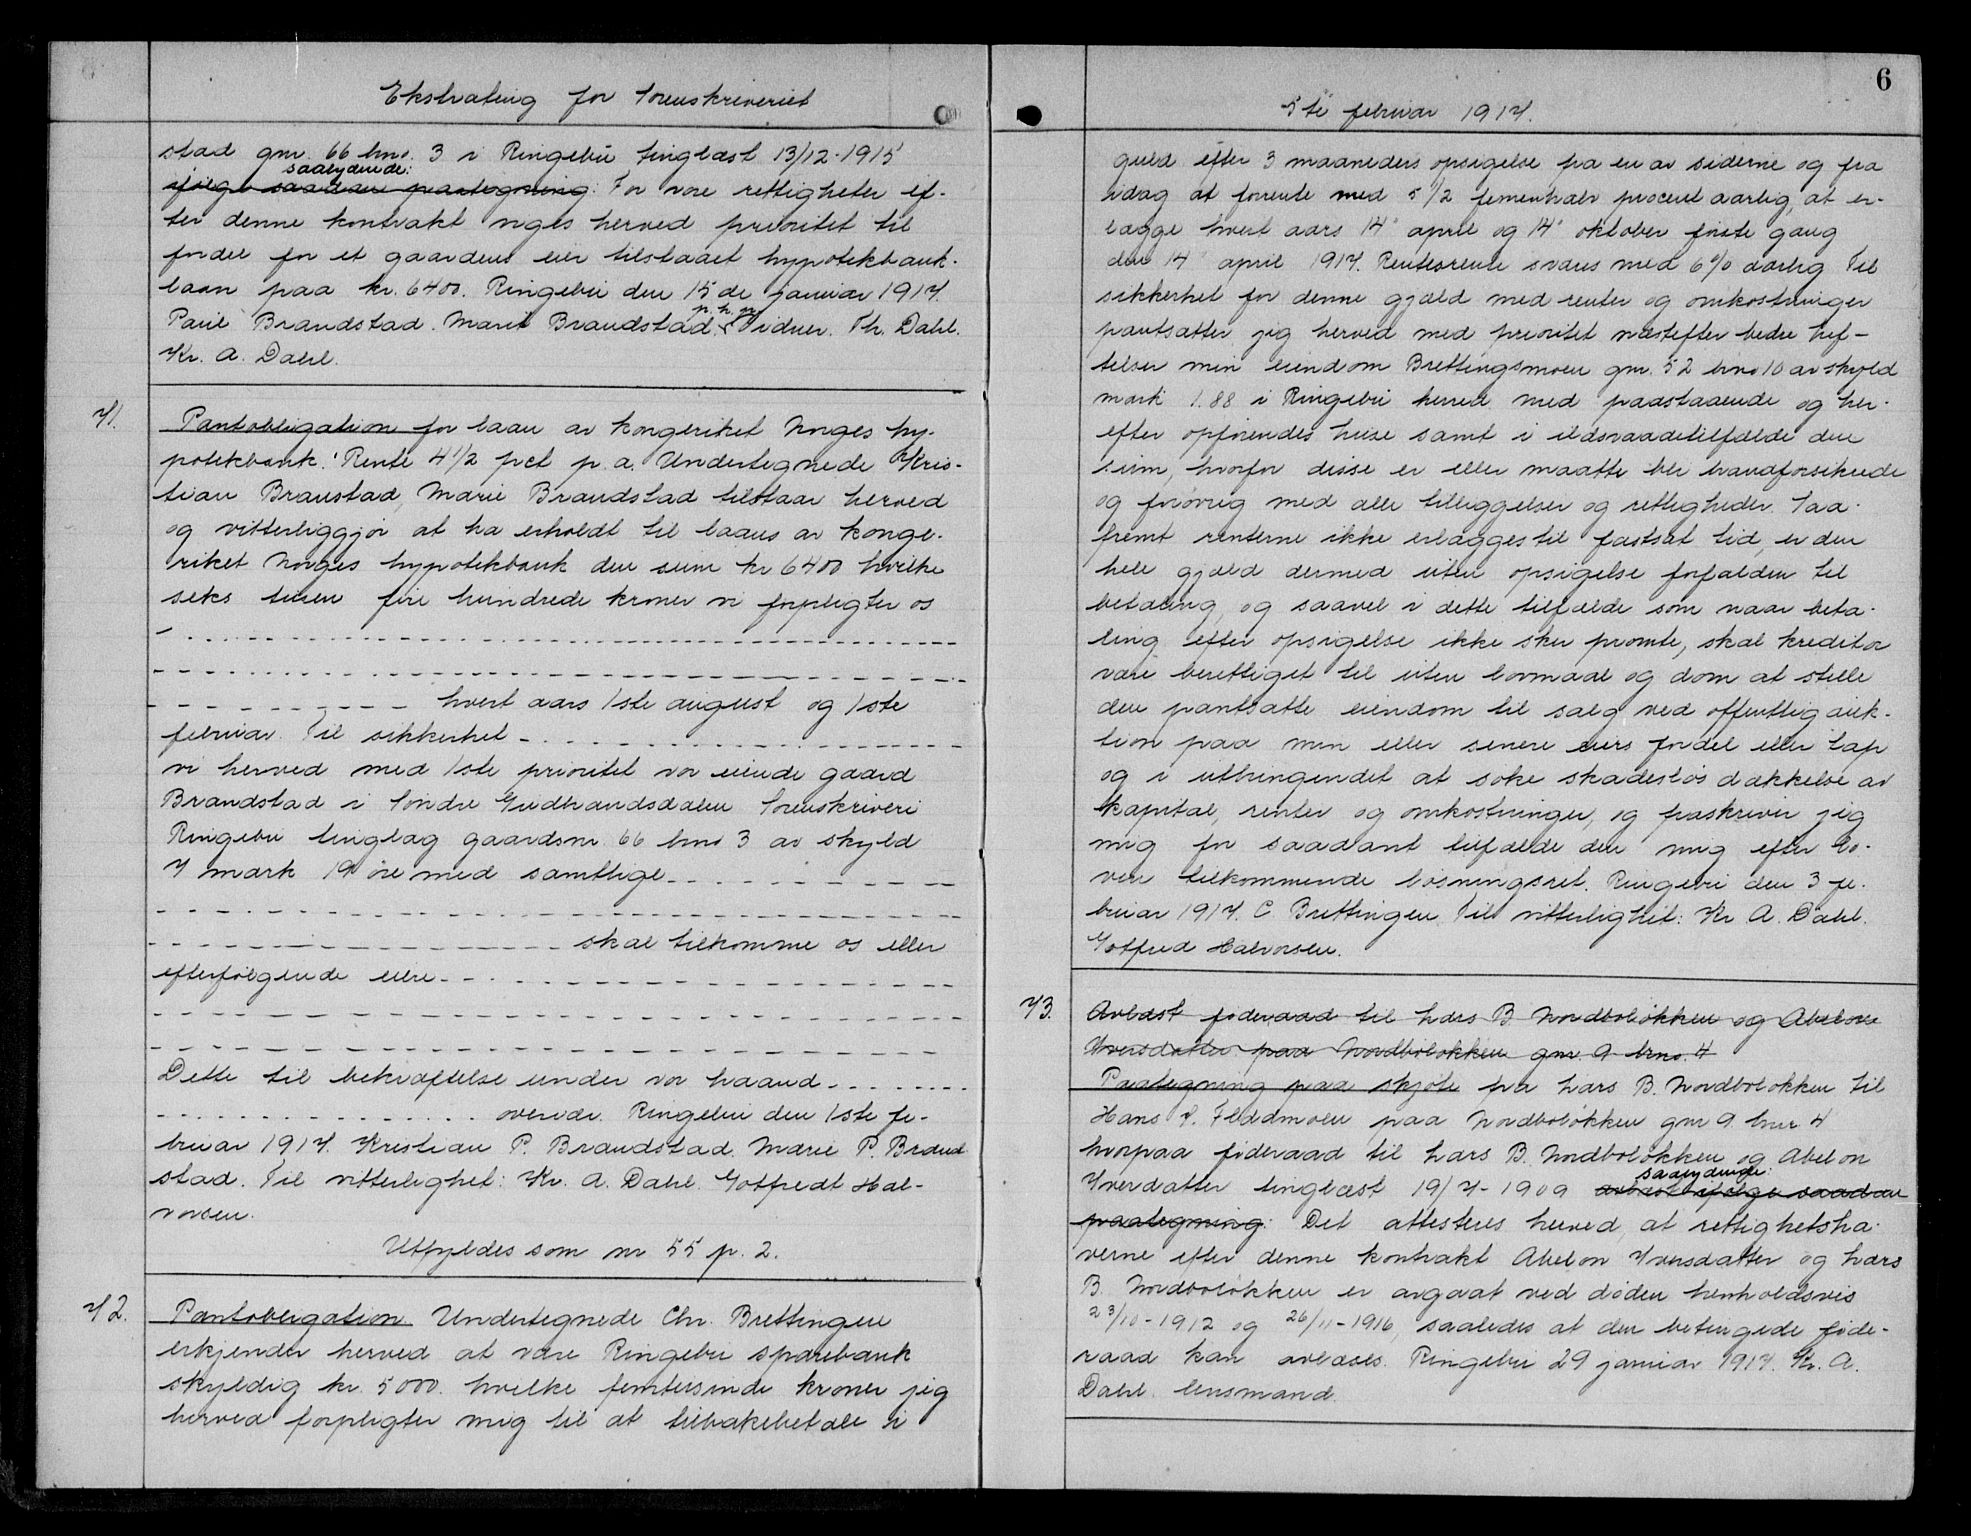 Ekstrating for Sorenskriveriet
stad gnr. 66 bno. 3 i Ringebu tinglæst 13/12-1915
saalydende:
ifølge saadan paategning: For vore rettigheter ef-
ter denne kontrakt viges herved prioritet til
fordel for et gaardens eier tilstaaet hypotekbank-
laan paa kr. 6400. Ringebu den 15de januar 1917.
p. h. p.
Paul Brandstad. Marit Brandstad Vidner. Th. Dahl.
Kr. A. Dahl.
71. Pantobligation for laan av kongeriket Norges hy-
potekbank. Rente 4 1/2 pct p. a. Undertegnede Kris-
tian Branstad, Marie Brandstad tilstaar herved
og vitterliggjør at ha erholdt til laans av konge-
riket Norges hypotekbank den sum kr 6400 hvilke
seks tusen fire hundrede kroner vi forpligter os
hvert aars 1ste august og 1ste
februar. Til sikkerhet
vi herved med 1ste prioritet vor eiende gaard
Brandstad i Søndre Gudbrandsdalen Sorenskriveri
Ringebu tinglag gaardsnr. 66 bno 3 av skyld
7 mark 19 øre med samtlige
skal tilkomme os eller
efterfølgende eiere
Dette til bekræftelse under vor haand
overvær. Ringebu den 1ste fe-
bruar 1917. Kristian P. Brandstad. Marie P. Brand
stad. Til vitterlighet: Kr. A. Dahl. Gotfredt Hal-
vorsen.
Utfyldes som nr 55 p. 2.
72. Pantobligation Undertegnede Chr. Brettingen
erkjender herved at være Ringebu sparebank
skyldig kr. 5000. hvilke femtusinde kroner jeg
herved forpligter mig til at tilbakebetale i
6
5te februar 1917.
guld efter 3 maaneders opsigelse fra en av siderne og fra
idag at forrente med 5 1/2 femenhalv procent aarlig, at er-
lægge hvert aars 14' april og 14' oktober første gang
den 14' april 1917. Rentesrente svares med 6% aarlig Til
sikkerhet for denne gjæld med renter og omkostninger
pantsætter jeg herved med prioritet næstefter bedre hef-
telser min eiendom Brettingsmoen gnr. 52 bno 10 av skyld
mark 1.88 i Ringebu herred med paastaaende og her-
efter opførendes huse samt i ildsvaadetilfælde den
sum, hvorfor disse er eller maatte bli brandforsikrede
og forøvrig med alle tilliggelser og rettigheder. Saa-
fremt renterne ikke erlægges til fastsat tid, er den
hele gjæld dermed uten opsigelse forfalden til
betaling, og saavel i dette tilfælde som naar beta-
ling efter opsigelse ikke sker promte, skal kreditor
være berettiget til uten lovmaal og dom at stille
den pantsatte eiendom til salg ved offentlig auk-
tion paa min eller senere eiers fordel eller tap
og i utbringendet at søke skadesløs dækkelse av
kapital, renter og omkostninger, og fraskriver jeg
mig for saadant tilfælde den mig efter lo-
ven tilkommende løsningsret. Ringebu den 3 fe-
bruar 1917. C. Brettingen Til vitterlighet: Kr A. Dahl.
Gotfred Halvorsen.
73. Avlæst føderaad til Lars B. Nordboløkken og Abelone
Iversdatter paa Nordboløkken gnr. 9 brno. 4
Paategning paa skjøte fra Lars B. Nordboløkken til
Hans P. Flddmoen paa Nordboløkken gnr 9. bnr. 4
hvorpaa føderaad til Lars B. Nordboløkken og Abelon
saalydende:
Iversdatter tinglæst 19/7-1909 avlæst ifølge saadan
paategning: Det attesteres herved, at rettighetsha-
verne efter denne kontrakt Abelon Iversdatter og Lars
B. Nordboløkken er avgaat ved døden henholdsvis
23/10-1912 og 26/11-1916, saaledes at den betingede føde-
raad kan avlæses. Ringebu 29 januar 1917. Kr. A.
Dahl. lensmand.